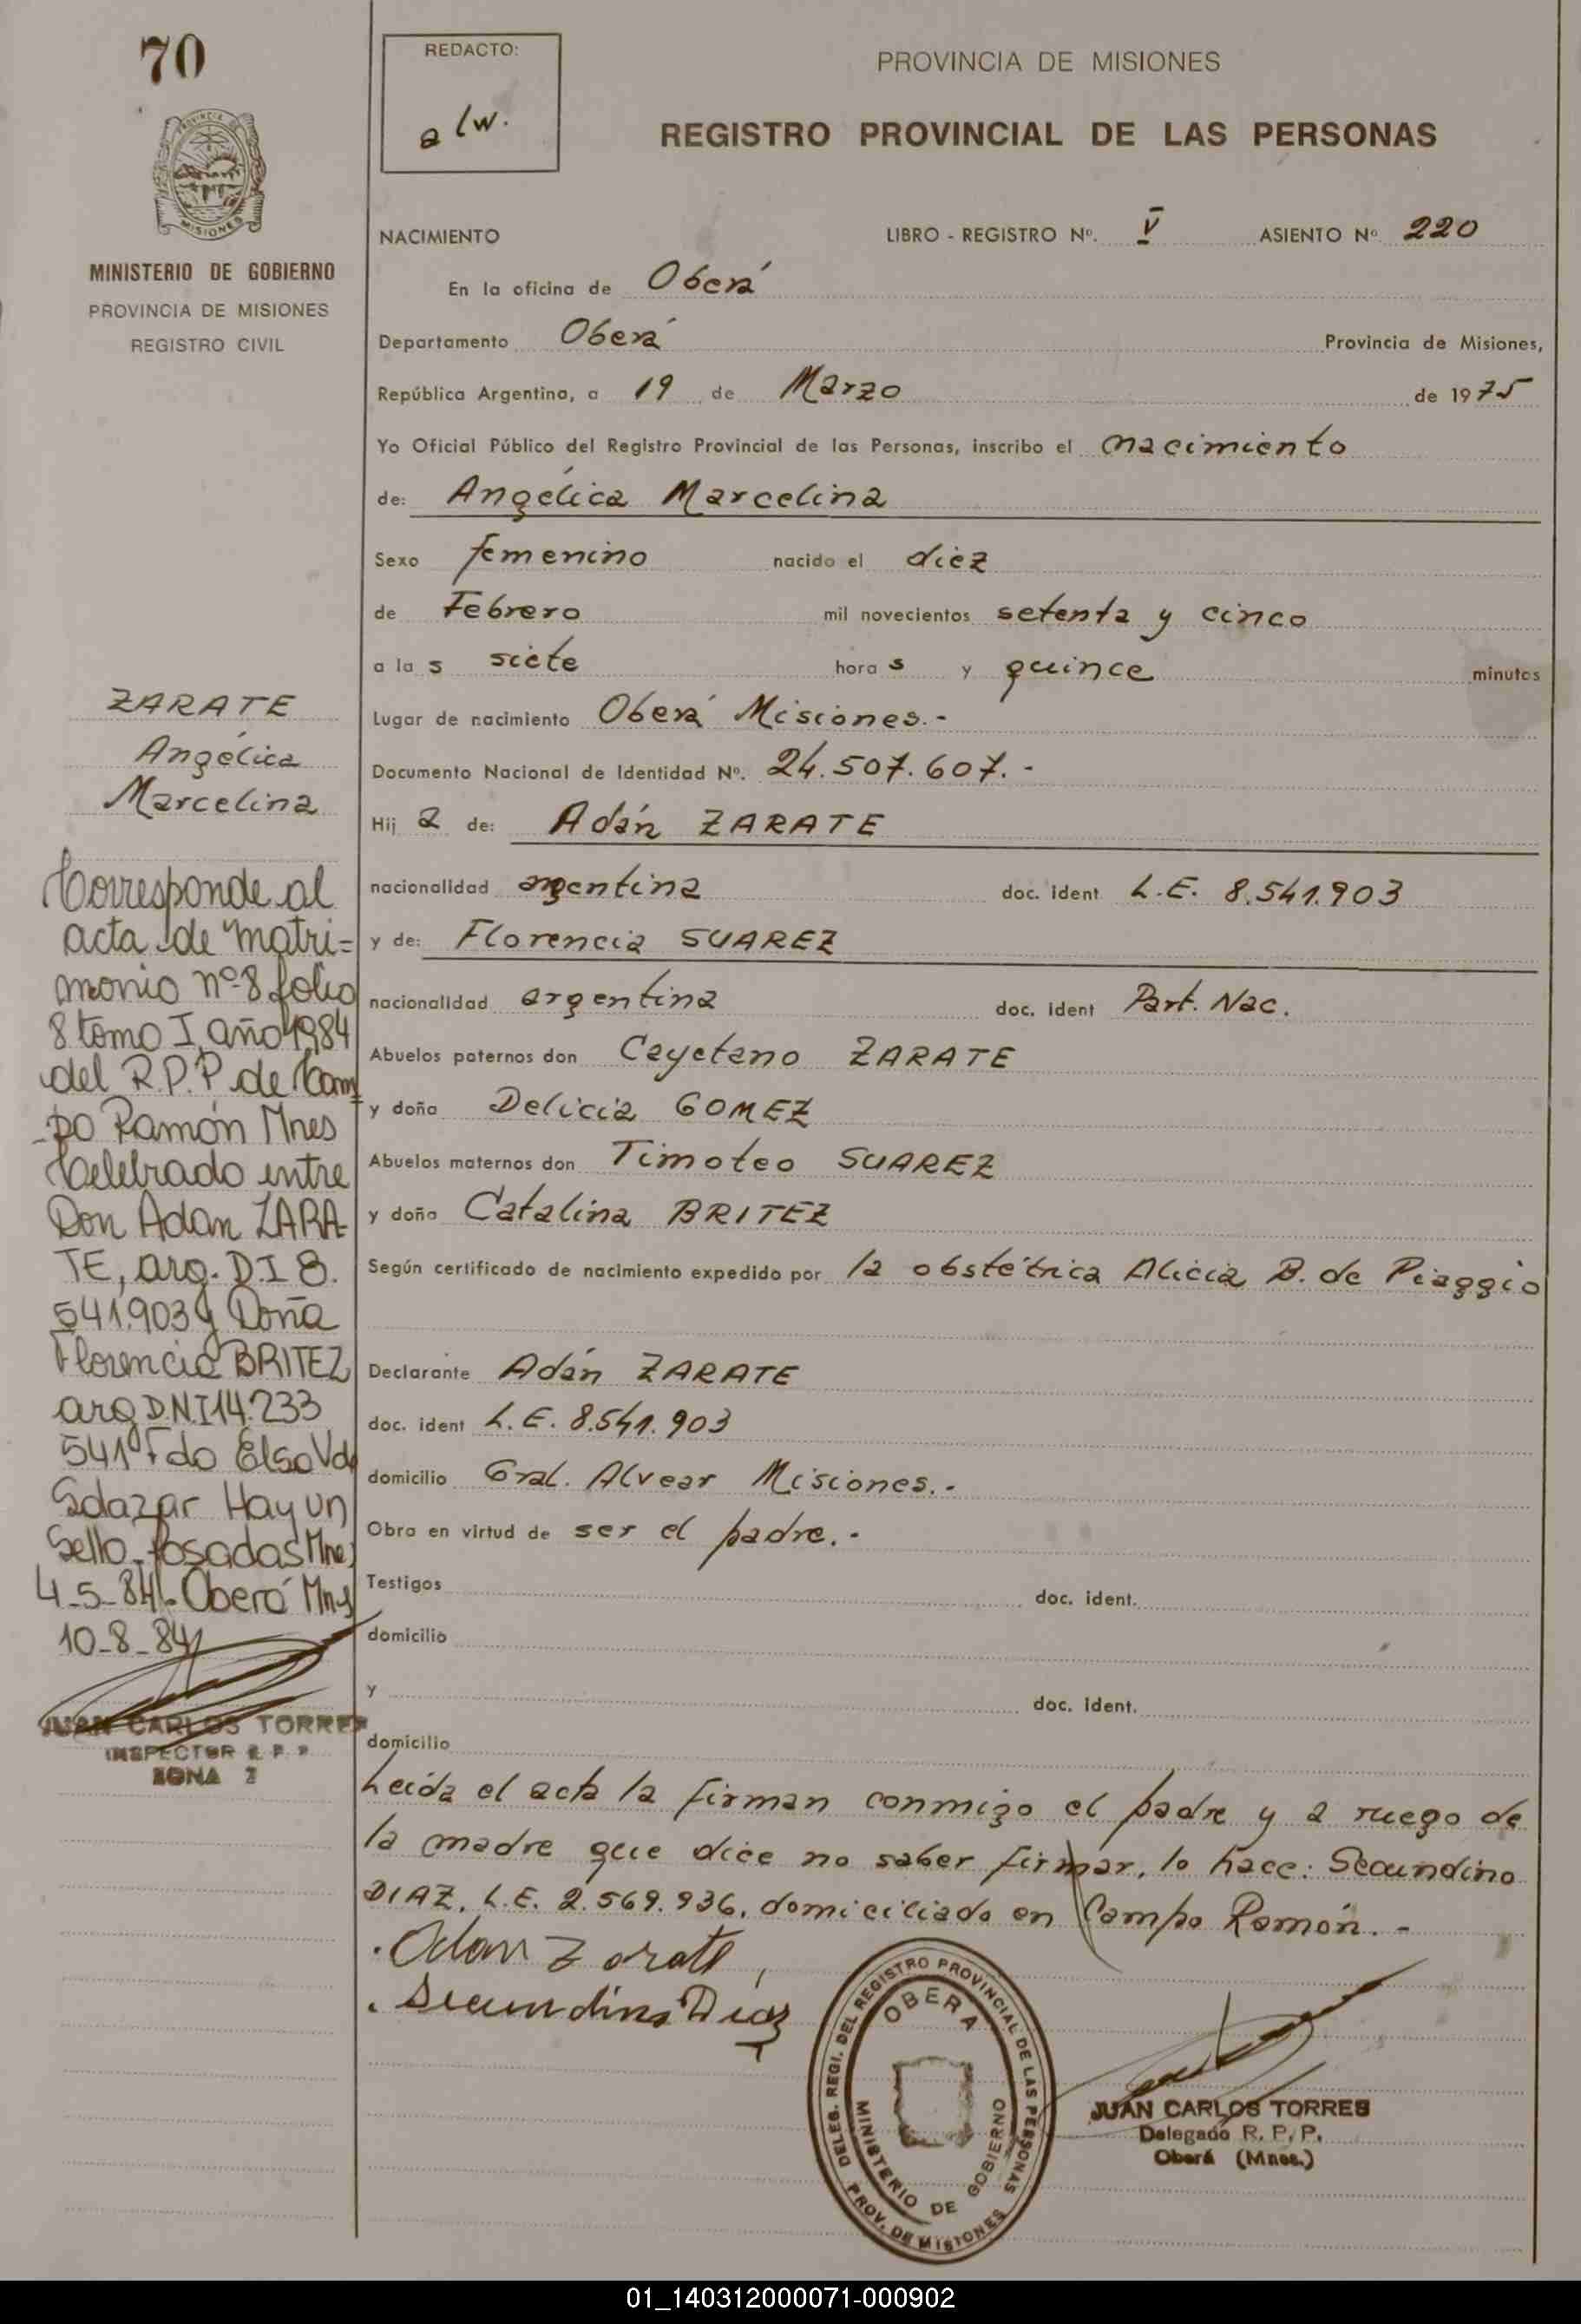 70
PROVINCIA DE
MISIONES
MINISTERIO DE GOBIERNO
PROVINCIA DE MISIONES
REGISTRO CIVIL
ZARATE
Angélica
Marcelina
Corresponde al
acta de matri=
monio nº 8 folio
8 tomo I año 1984
del R.P.P de Cam=
-po Ramón Mnes
Celebrado entre
Don Adan ZARA-
TE, arg. D.I 8.
541.903 y Doña
Florencia BRITEZ
arg D.N.I 14.233
541 Fdo Elsa Vde
Salazar Hay un
Sello Posadas Mnes
4-5-84. Oberá Mnes
10-8-84
JUAN CARLOS TORRES
INSPECTOR R. P. P.
ZONA 2
REDACTO:
a lw.
PROVINCIA DE MISIONES
REGISTRO PROVINCIAL DE LAS PERSONAS
NACIMIENTO LIBRO - REGISTRO Nº. V ASIENTO Nº 220
En la oficina de Oberá
Departamento Oberá Provincia de Misiones,
República Argentina, a 19 de Marzo de 1975
Yo Oficial Público del Registro Provincial de las Personas, inscribo el nacimiento
de: Angélica Marcelina
Sexo femenino nacido el diez
de Febrero mil novecientos setenta y cinco
a las siete horas y quince minutos
Lugar de nacimiento Oberá Misiones.-
Documento Nacional de Identidad Nº. 24.507.607.-
Hija de: Adán ZARATE
nacionalidad argentina doc. ident L.E. 8.541.903
y de: Florencia SUAREZ
nacionalidad argentina doc. ident Part. Nac.
Abuelos paternos don Cayetano ZARATE
y doña Delicia GOMEZ
Abuelos maternos don Timoteo SUAREZ
y doña Catalina BRITEZ
Según certificado de nacimiento expedido por la obstétrica Alicia B. de Piaggio
Declarante Adán ZARATE
doc. ident L.E. 8.541.903
domicilio Gral. Alvear Misiones.-
Obra en virtud de ser el padre.-
Testigos doc. ident.
domicilio
y doc. ident.
domicilio
Leida el acta la firman conmigo el padre y a ruego de
la madre que dice no saber firmar, lo hace: Secundino
DIAZ, L.E. 2.569.936, domiciliado en Campo Ramón.-
Adan Zarate
Secundino Diaz
DELEG. REGI. DEL REGISTRO PROVINCIAL DE LAS PERSONAS
OBERA
MINISTERIO DE GOBIERNO
PROV. DE MISIONES
JUAN CARLOS TORRES
Delegado R. P. P.
Oberá (Mnes.)
01_140312000071-000902